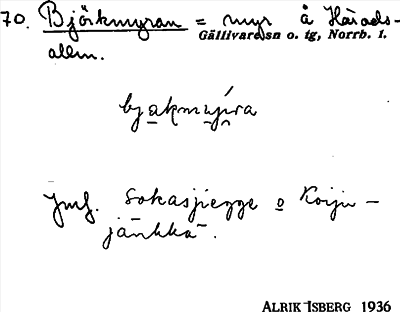 70. Björkmyran = myr å Härads-
Gällivare sn o. tg, Norrb. l.
allm.
bjakmyra
Jmf. Sokasjiegge o Koiju-
jänkkä.
ALRIK ISBERG 1936